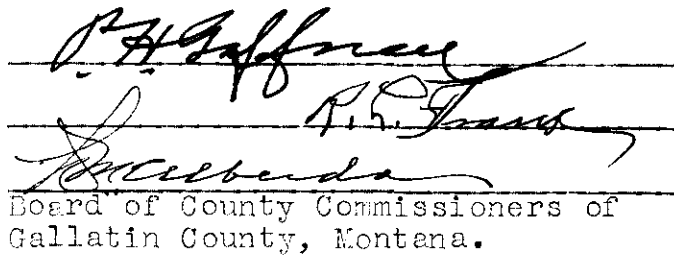 P. H. Gaffney
R. L.
Board of County Commissioners of
Gallatin County, Montana.